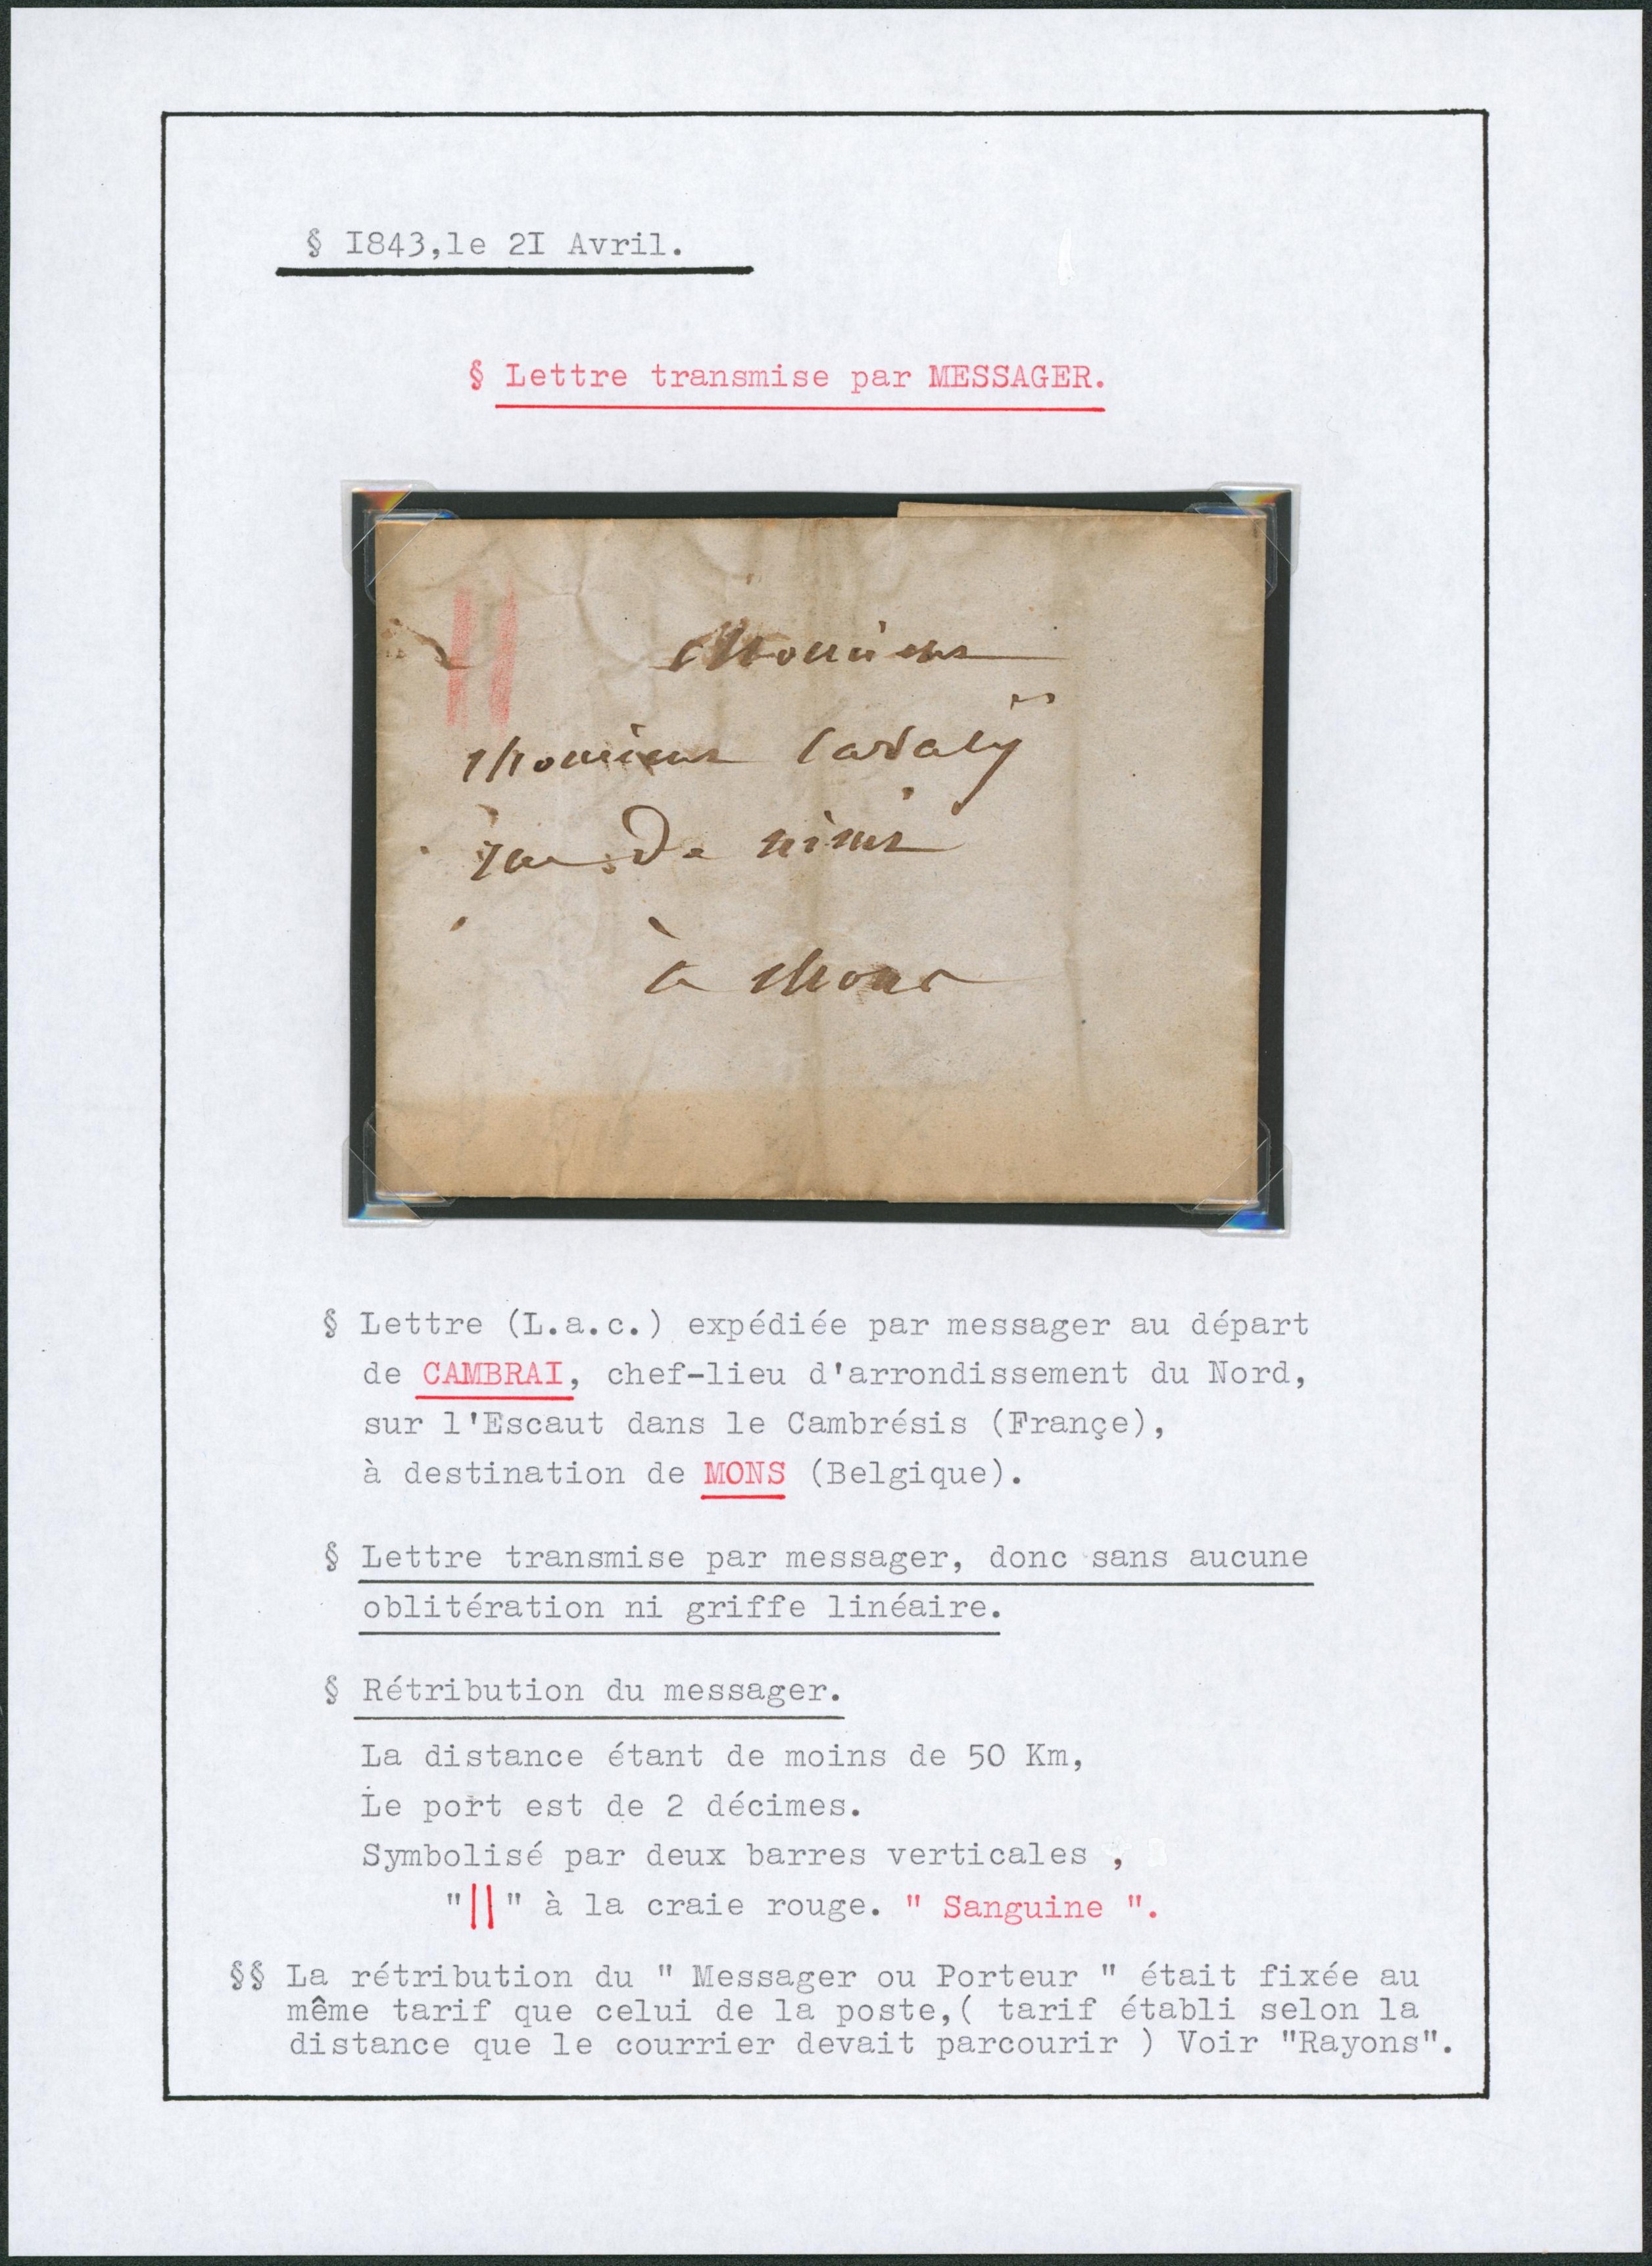 § I843,le 2I Avril.
§ Lettre transmise par MESSAGER.
||
Monsieur
Monsieur
rue De nimi
à Mons
§ Lettre (L.a.c.) expédiée par messager au départ
de CAMBRAI, chef-lieu d'arrondissement du Nord,
sur l'Escaut dans le Cambrésis (Françe),
à destination de MONS (Belgique).
§ Lettre transmise par messager, donc sans aucune
oblitération ni griffe linéaire.
§ Rétribution du messager.
La distance étant de moins de 50 Km,
Le port est de 2 décimes.
Symbolisé par deux barres verticales ,
"||" à la craie rouge. " Sanguine ".
§§ La rétribution du " Messager ou Porteur " était fixée au
même tarif que celui de la poste,( tarif établi selon la
distance que le courrier devait parcourir ) Voir "Rayons".